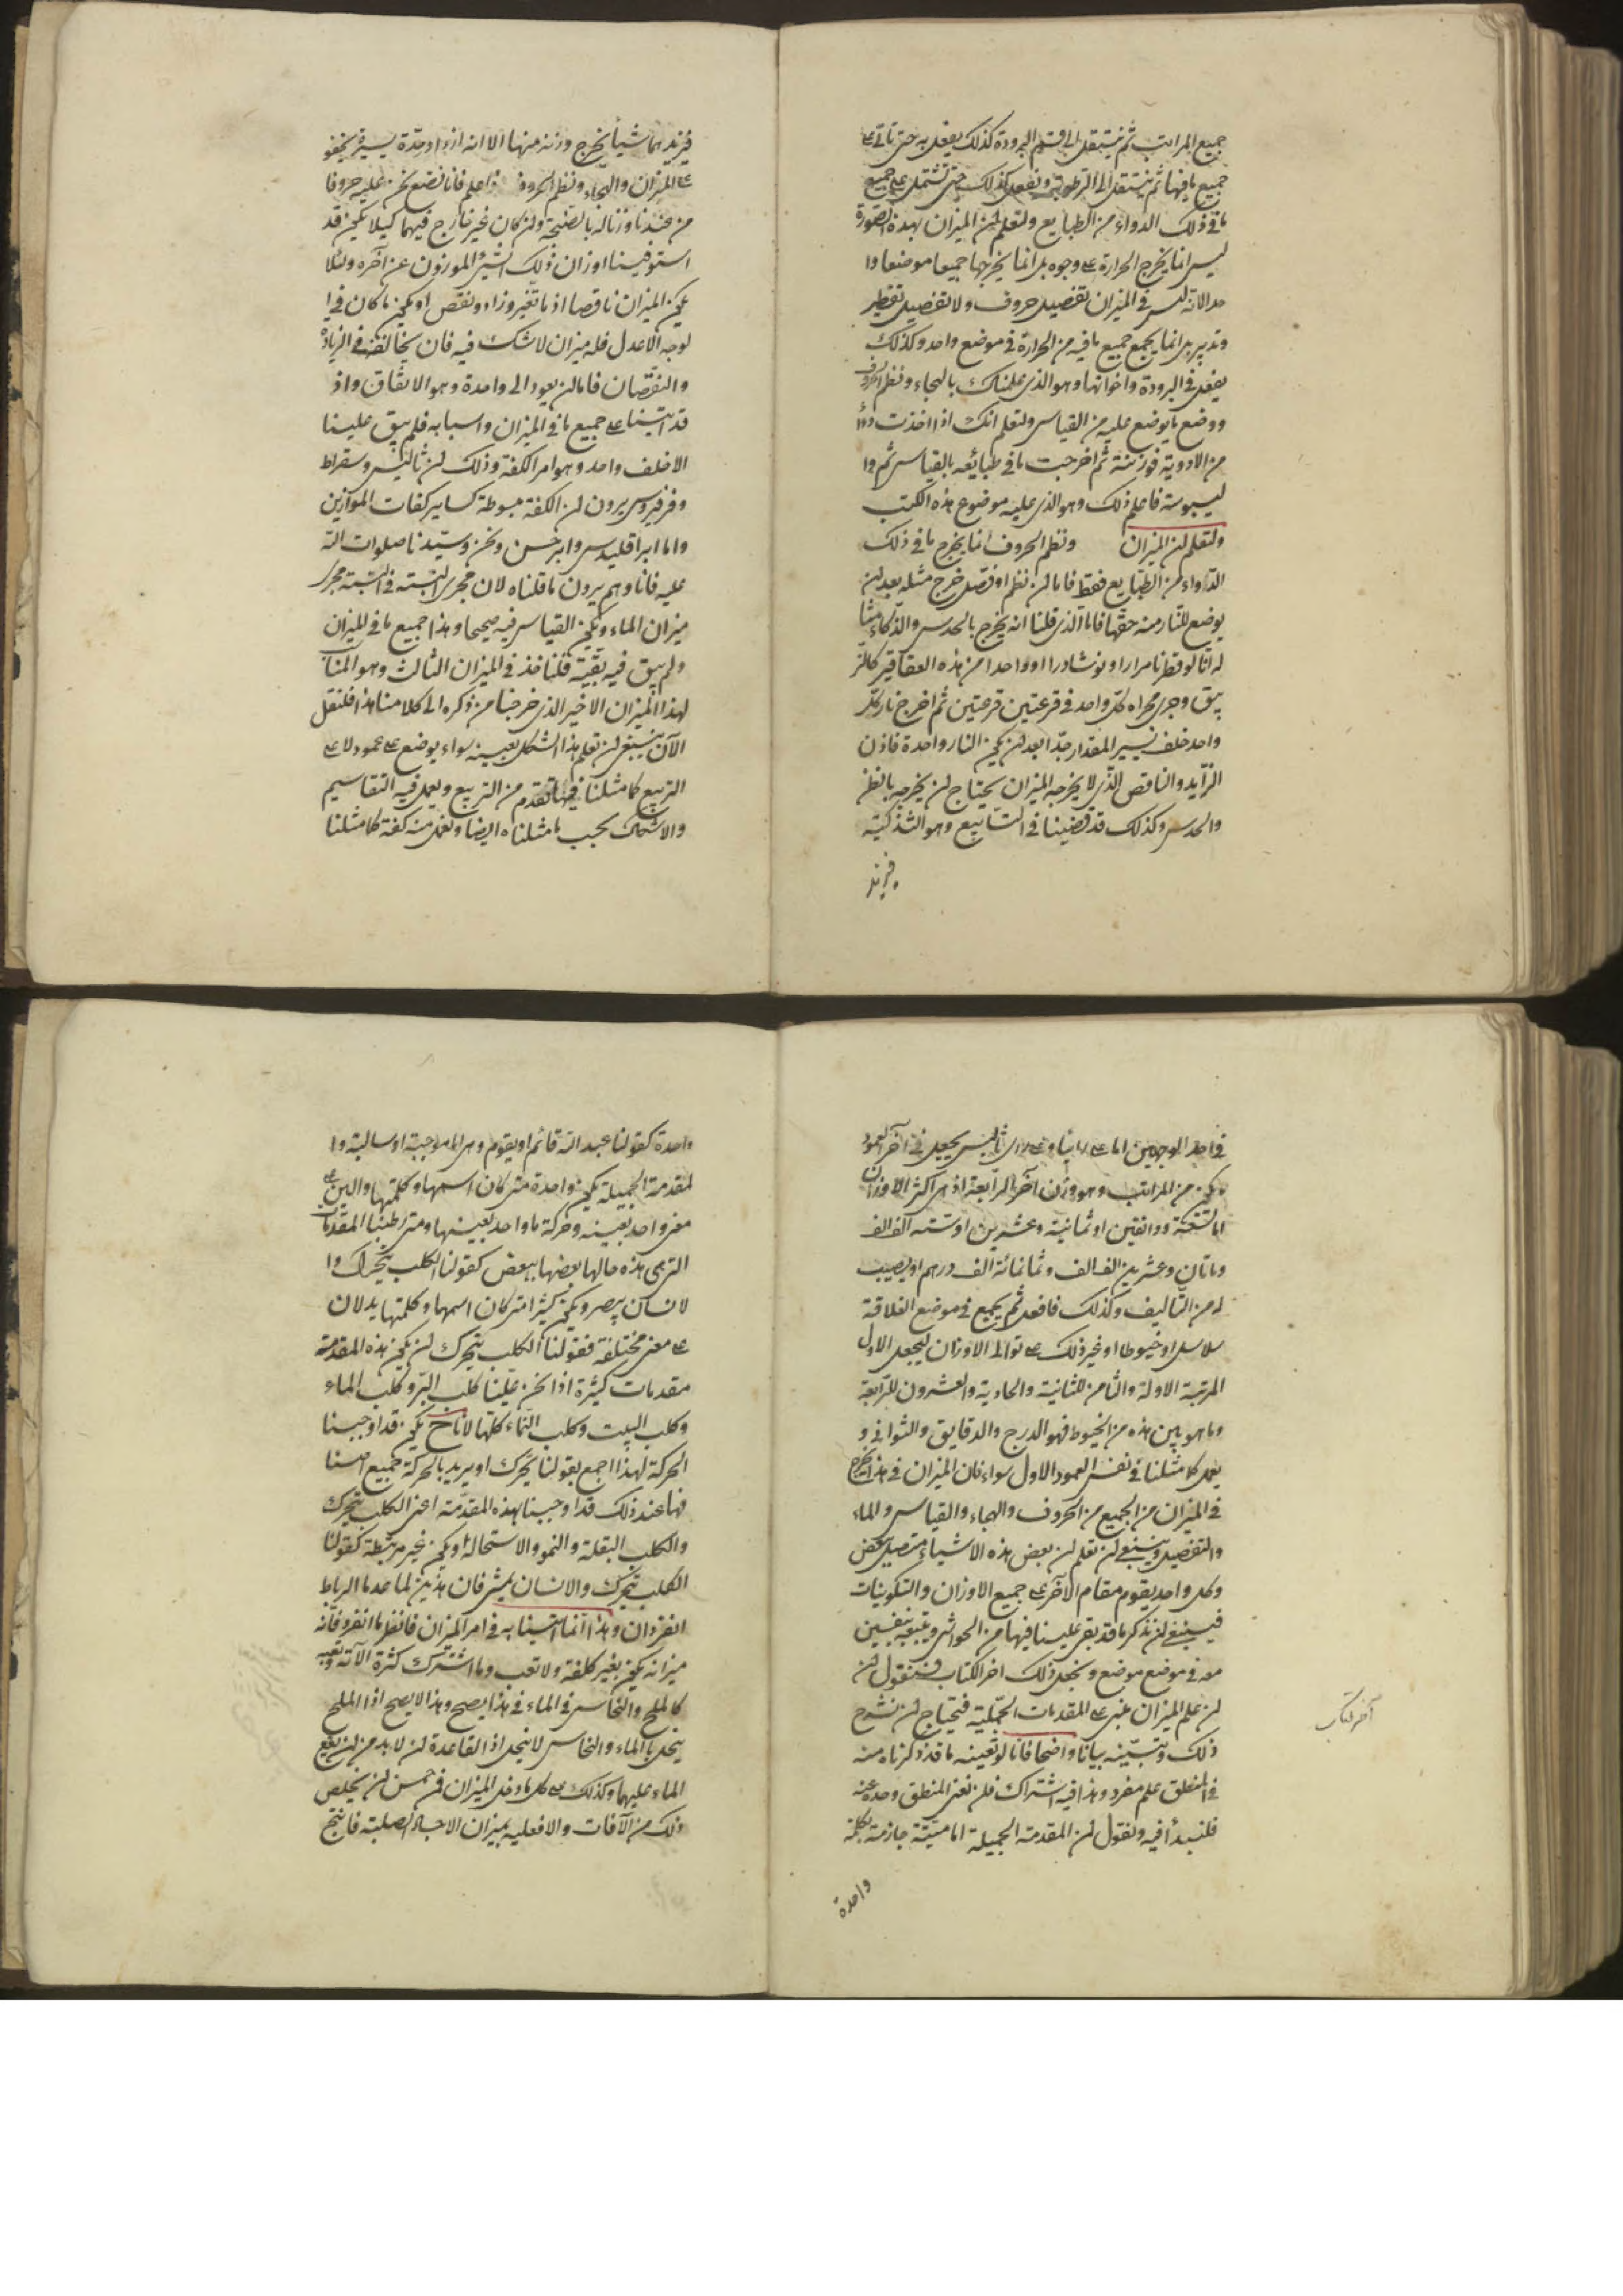 جميع المراتب ثم ينتقل الى قسم البرودة كذلك يفعل به حتى تاتى على
جميع ما فيها ثم ينتقل الى الرطوبة ويفعل كذلك حتى تشتمل على جميع
ما فى ذلك الدواء من الطبايع ولتعلم ان الميزان بهذه الصورة
ليس انما يخرج الحرارة على وجوه بل انما يخرجها جميعا موضعا وا
حدا لانه ليس فى الميزان تفصيل حروف ولا تفصيل تقطير
وتدبير بل انما يجمع جميع ما فيه من الحرارة فى موضع واحد وكذلك
يفعل فى البرودة واخواتها وهو الذى علمناك بالهجاء ونظم الحروف
ووضع ما يوضع عليه من القياس ولتعلم انك اذا اخذت دواء
من الادوية فوزنته ثم اخرجت ما فى طبائعه بالقياس ثم وا
ليبوسة فاعلم ذلك وهو الذى عليه موضوع هذه الكتب
ولتعلم ان الميزان ونظم الحروف انما يخرج ما فى ذلك
الدواء من الطبايع فقط فاما ان نظم او فصل خرج مثله بعد ان
يوضع للنار منه حقها فاما الذى قلنا انه يخرج بالحدس والذكاء مثا
له انا لو قطرنا مرارا او نوشادرا او واحدا من هذه العقاقير كالز
يبق وجرى مجراه كل واحد فى قرعتين قرعتين ثم اخرج نار كل
واحد خلف يسير المقدار جدا بعد ان يكون النار واحدة فاذن
الزايد والناقص الذى لا يخرجه الميزان يحتاج ان يخرجه بالظن
والحدس وكذلك قد قضينا فى التتابيع وهو التذكية
فنزيد
فنزيدهما شيأ يخرج وزنه منها الا انه اذا او حدّة يسيرة يخفو
على الميزان والهجاء ونظم الحروف واعلم فانا نضع نحن عليه حروفا
من عندنا وزناله بالصنجة وان كان غير خارج فيهما كيلا يكون قد
استوفينا اوزان ذلك الشئ الموزون عن آخره ولئلا
يكون الميزان ناقصا اذ ما تغير وزاد ونقص او يكون ما كان فى ا
لوجه الاعدل فله ميزان لاشك فيه فان يخالفه فى الزيادة
والنقصان فاما ان يعود الى واحدة وهو الاتفاق واذ
قد اتينا على جميع ما فى الميزان واسبابه فلم يبق علينا
الا خلف واحد وهو امر الكفة وذلك ان ثاليس وسقراط
وفرفريوس يرون ان الكفة مبسوطة كساير كفات الموازين
واما ابراقليدس وابرخس ونحن وسيدنا صلوات الله
عليه فانا وهم يرون ما قلناه لان مجرى النسبة فى النسبة مجرى
ميزان الماء ويكون القياس فيه صحيحا وهذا جميع ما فى الميزان
ولم يبق فيه بقية قلنا خذ فى الميزان الثالث وهو المناسب
لهذا الميزان الاخير الذى خرجنا من ذكره الى كلامنا هذا فلنقل
الآن ينبغى ان تعلم هذا الشكل بعينه سواء يوضع على عمود لا على
التربيع كما مثلنا فيما تقدم من التربيع ويعمل فيه التقاسيم
والاشكال بحسب ما مثلناه ايضا ونعمل منه كفة كما مثلنا
فى احد الوجهين اما على راينا او على راى ثاليس يجعل فى آخر العمود
يكون من المراتب وهو وزن آخر الرابعة اذ هى اكثر الاوزان
اما تسعة ودانقين او ثمانية وعشرين او ستة الف الف
وماتان وعشرين الف الف وثمانمائة الف درهم او يصيب
له من التاليف وكذلك فافعل ثم يجمع فى موضع العلاقة
سلاسل او خيوطا او غير ذلك على توالى الاوزان ليجعل الاول
المرتبة الاولة والثامن للثانية والحادية والعشرون للرابعة
وما هو بين هذه من الخيوط فهو الدرج والدقايق والثوانى و
يعمل كما مثلنا فى نفس العمود الاول سواء فان الميزان فى هذا يخرج
فى الميزان من الجميع من الحروف والهجاء والقياس والماء
والتفصيل وينبغى ان تعلم ان بعض هذه الاشياء متصل ببعض
وكل واحد يقوم مقام الآخر على جميع الاوزان والتكوينات
فينبغى ان نذكر ما قد بقى علينا فيها من الحواشى
معه فى موضع موضع ونجعل ذلك اخر الكتاب فنقول ان
ان علم الميزان بنى على المقدمات الجملية فتحتاج ان نشرح
ذلك وتبينه بيانا واضحا فانا لو نعينه ما قد ذكرناه منه
فى المنطق علم مفرد وهذا فيه اشتراك فلن نغنى المنطق وحده عنه
فلنبدأ فيه ونقول ان المقدمة الجميلة اما مبينة جازمة بكلمة
آخر كتاب
واحدة
واحدة كقولنا عبد الله قائم او يقوم وهى اما موجبة او سالبة وا
لمقدمة الجميلة يكون واحدة متى كان اسمها وكلمتها دالين على
معنى واحد بعينه وحركة ما واحد بعينها ومتى ربطنا المقدمات
التى هى هذه حالها بعضها ببعض كقولنا الكلب يتحرك وا
لانسان يبصر ويكون كثيرا متى كان اسمها وكلمتها يدلان
على معنى مختلفة فقولنا الكلب يتحرك ان يكون هذه المقدمة
مقدمات كثيرة اذا نحن عنينا كلب البر وكلب الماء
وكلب البيت وكلب السماء كلها لانا ح يكون قد اوجبنا
الحركة لهذا اجمع بقولنا يتحرك او يريد بالحركة جميع اصنا
فها عند ذلك قد اوجبنا بهذه المقدمة اعنى الكلب يتحرك
والكلب النقلة والنمو والاستحالة او يكون غير مرتبطة كقولنا
الكلب يتحرك والانسان يمشى فان هذين لما عدما الرباط
انفردان وهذا انما اتينا به فى امر الميزان فانظر ما انفرد فانه
ميزانه يكون بغير كلفة ولا تعب وما اشترك كثرة الآته وتعبه
كالملح والنحاس فى الماء فى هذا يصح وهذا لا يصح اذا الملح
ينحل بالماء والنحاس لا ينحل اذ القاعدة ان لا بد من ان يقع
الماء عليهما وكذلك على كل ما دخل الميزان فمن حسن ان يخلص
ذلك من الآفات والا فعليه بميزان الاجساد الصلبة فانتج